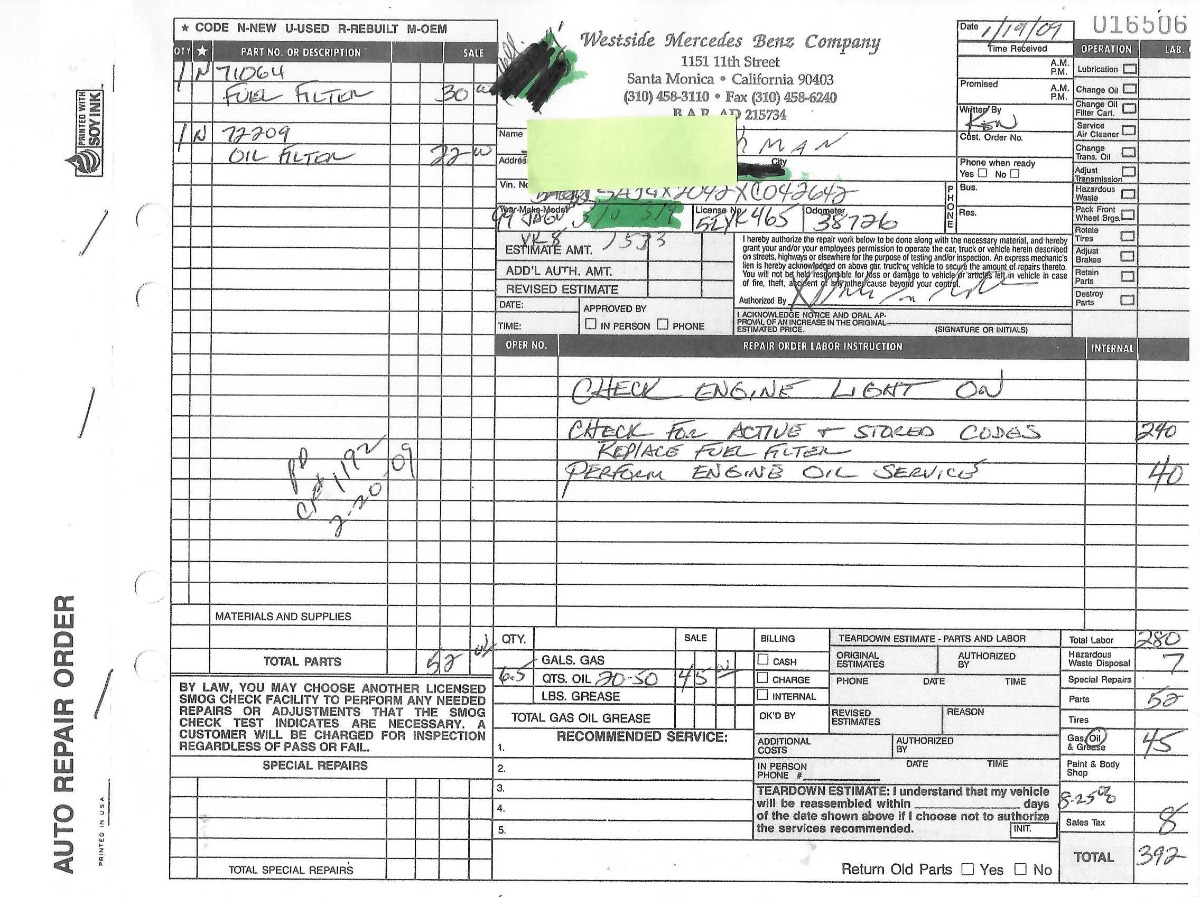 ★ CODE N-NEW U-USED R-REBUILT M-OEM
QTY ★ PART NO. OR DESCRIPTION SALE
1 N 71064
FUEL FILTER 30 00
1 N 72209
OIL FILTER 22 00
PRINTED WITH
SOY INK
PD
CK# 1192
2-20-09
MATERIALS AND SUPPLIES
TOTAL PARTS 52 00
BY LAW, YOU MAY CHOOSE ANOTHER LICENSED
SMOG CHECK FACILITY TO PERFORM ANY NEEDED
REPAIRS OR ADJUSTMENTS THAT THE SMOG
CHECK TEST INDICATES ARE NECESSARY. A
CUSTOMER WILL BE CHARGED FOR INSPECTION
REGARDLESS OF PASS OR FAIL.
SPECIAL REPAIRS
TOTAL SPECIAL REPAIRS
AUTO REPAIR ORDER
PRINTED IN USA
Westside Mercedes Benz Company
1151 11th Street
Santa Monica • California 90403
(310) 458-3110 • Fax (310) 458-6240
B.A.R. AD 215734
Name MAN
Address City
Vin. No. SAJGX2042XC042642
Year-Make-Model 99 JAGU License No. 5LYK465 Odometer 38726
XK8
ESTIMATE AMT. 1533
ADD'L AUTH. AMT.
REVISED ESTIMATE
DATE: APPROVED BY
TIME: IN PERSON PHONE
I hereby authorize the repair work below to be done along with the necessary material, and hereby
grant your and/or your employees permission to operate the car, truck or vehicle herein described
on streets, highways or elsewhere for the purpose of testing and/or inspection. An express mechanic's
lien is hereby acknowledged on above car, truck or vehicle to secure the amount of repairs thereto.
You will not be held responsible for loss or damage to vehicle or articles left in vehicle in case
of fire, theft, accident or any other cause beyond your control.
Authorized By X
I ACKNOWLEDGE NOTICE AND ORAL AP-
PROVAL OF AN INCREASE IN THE ORIGINAL
ESTIMATED PRICE. (SIGNATURE OR INITIALS)
Date 1/19/09
U16506
Time Received
A.M.
P.M.
Promised A.M.
P.M.
Written By Ken
Cust. Order No.
Phone when ready
Yes No
PHONE
Bus.
Res.
OPERATION LAB.
Lubrication
Change Oil
Change Oil
Filter Cart.
Service
Air Cleaner
Change
Trans. Oil
Adjust
Transmission
Hazardous
Waste
Pack Front
Wheel Brgs.
Rotate
Tires
Adjust
Brakes
Retain
Parts
Destroy
Parts
OPER NO. REPAIR ORDER LABOR INSTRUCTION INTERNAL
CHECK ENGINE LIGHT ON
CHECK FOR ACTIVE + STORED CODES 240
REPLACE FUEL FILTER
PERFORM ENGINE OIL SERVICE 40
QTY. SALE
GALS. GAS
6.5 QTS. OIL 20-50 45 00
LBS. GREASE
TOTAL GAS OIL GREASE
RECOMMENDED SERVICE:
1.
2.
3.
4.
5.
BILLING
CASH
CHARGE
INTERNAL
OK'D BY
TEARDOWN ESTIMATE - PARTS AND LABOR
ORIGINAL
ESTIMATES
AUTHORIZED
BY
PHONE DATE TIME
REVISED
ESTIMATES
REASON
ADDITIONAL
COSTS
AUTHORIZED
BY
IN PERSON DATE TIME
PHONE #
TEARDOWN ESTIMATE: I understand that my vehicle
will be reassembled within days
of the date shown above if I choose not to authorize
the services recommended. INIT.
Return Old Parts Yes No
Total Labor 280
Hazardous
Waste Disposal 7
Special Repairs
Parts 52
Tires
Gas, Oil
& Grease 45
Paint & Body
Shop
8.25%
Sales Tax 8
TOTAL 392